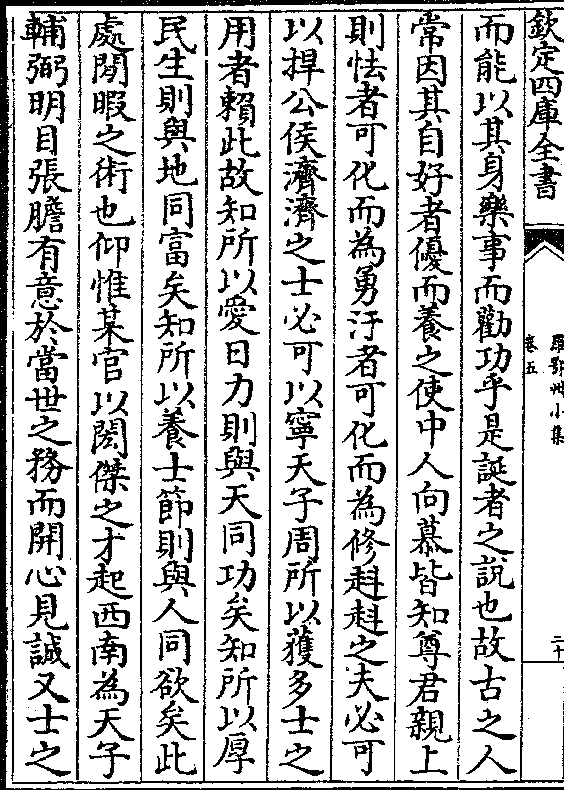 欽定四庫全書
羅鄂州小集
卷五
二十
而能以其身樂事而勸功乎是誕者之說也故古之人
常因其自好者優而養之使中人向慕皆知尊君親上
則怯者可化而為勇汙者可化而為修赳赳之夫必可
以捍公侯濟濟之士必可以寧天子周所以獲多士之
用者賴此故知所以愛日力則與天同功矣知所以厚
民生則與地同富矣知所以養士節則與人同欲矣此
處閒暇之術也仰惟某官以閎傑之才起西南為天子
輔弼明目張膽有意於當世之務而開心見誠又士之